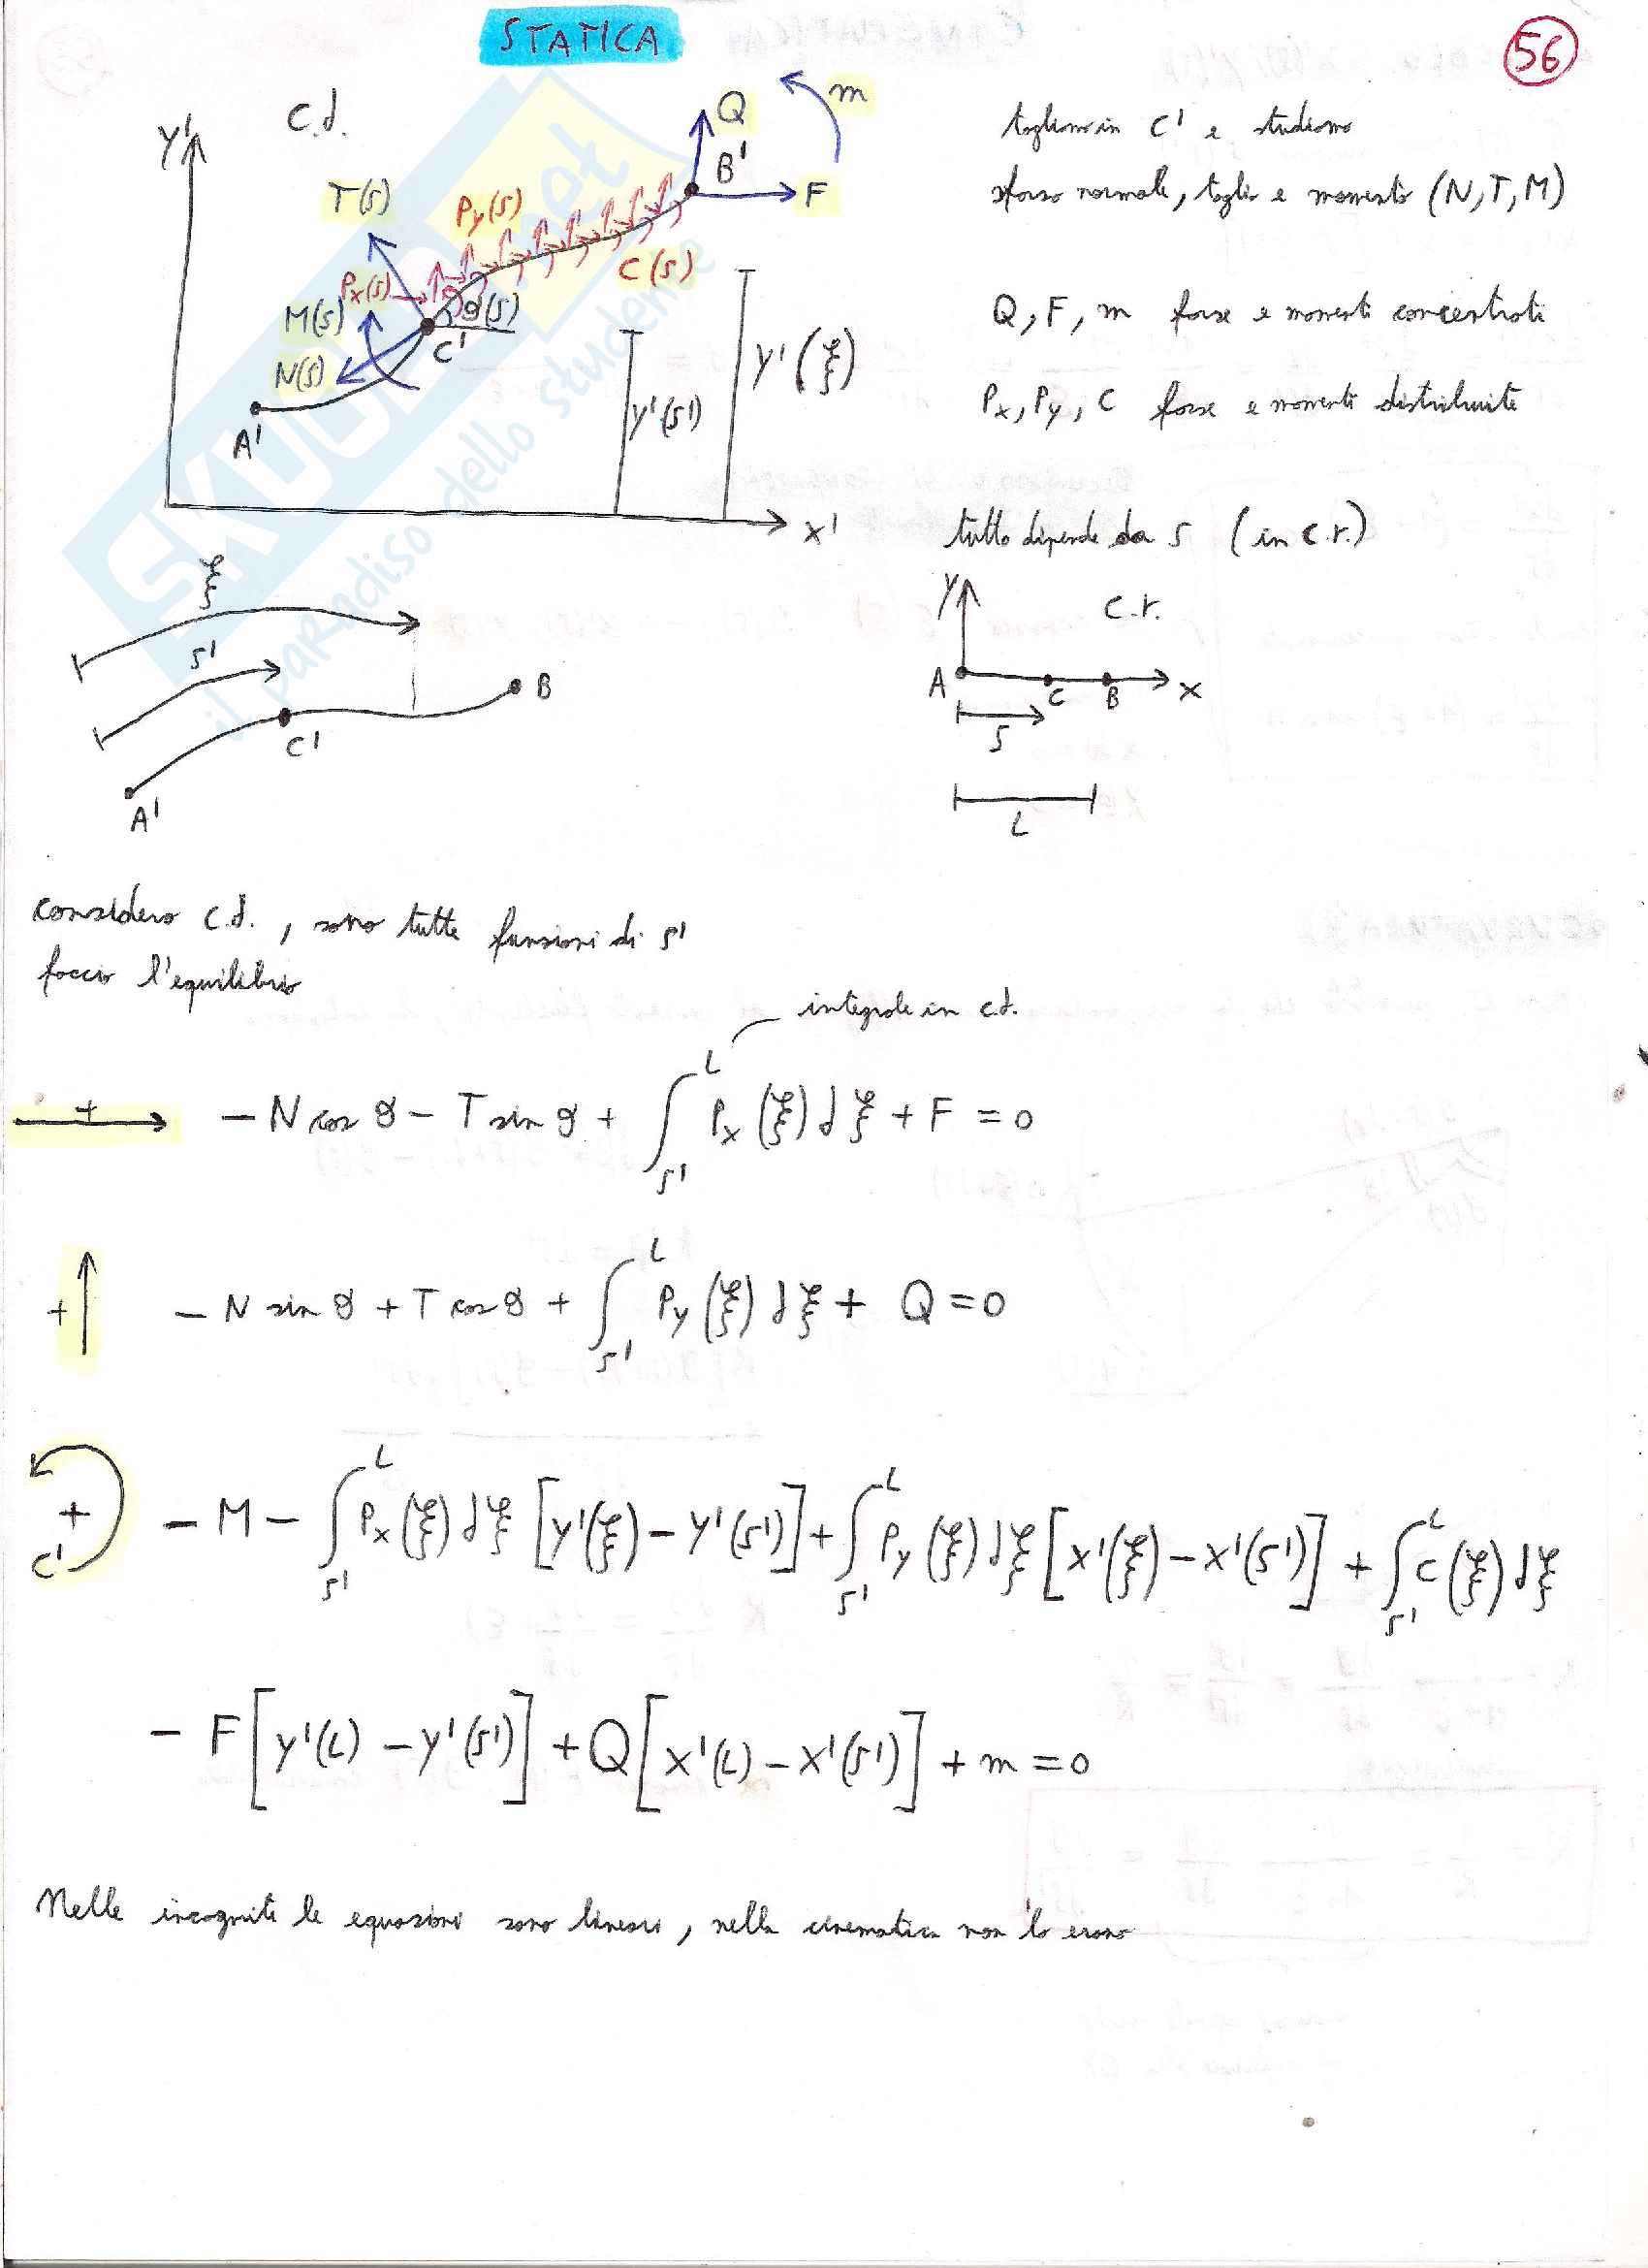 STATICA
56
C.d.
Y'
T(s)
Py(s)
Q
B'
m
F
Px(s)
M(s)
N(s)
ϑ(s)
C'
C(s)
A'
y'(s')
y'(ξ)
x'
tagliamo in C' e studiamo
sforzo normale, taglio e momento (N,T,M)
Q, F, m forze e momenti concentrati
Px, Py, C forze e momenti distribuite
tutto dipende da s (in c.r.)
ξ
s'
C'
B
A'
Y
C.r.
A
C
B
x
s
L
considero c.d., sono tutte funzioni di s'
faccio l'equilibrio
integrale in c.d.
+ → − N cos ϑ − T sin ϑ + ∫_{s'}^{L} Px(ξ) dξ + F = 0
+ ↑ − N sin ϑ + T cos ϑ + ∫_{s'}^{L} Py(ξ) dξ + Q = 0
+ C' − M − ∫_{s'}^{L} Px(ξ) dξ [y'(ξ) − y'(s')] + ∫_{s'}^{L} Py(ξ) dξ [x'(ξ) − x'(s')] + ∫_{s'}^{L} C(ξ) dξ
− F [y'(L) − y'(s')] + Q [x'(L) − x'(s')] + m = 0
Nelle incognite le equazioni sono lineari, nella cinematica non lo erano
SKUOLA.net
il paradiso dello studente